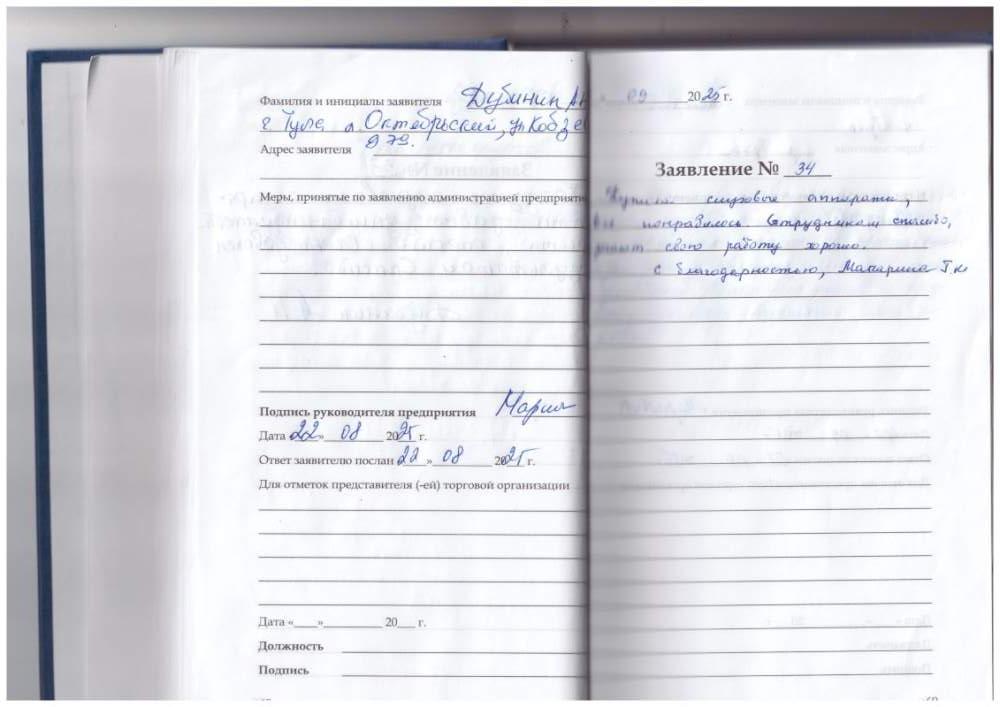 Фамилия и инициалы заявителя Дубинин Ан
г Тула п. Октябрьский, ул Кобзе
Адрес заявителя д 79.
Меры, принятые по заявлению администрацией предприяти
Подпись руководителя предприятия Марил
Дата 22» 08 2025 г.
Ответ заявителю послан 22 » 08 2025 г.
Для отметок представителя (-ей) торговой организации
Дата «___»_________ 20___ г.
Должность
Подпись
09 2025 г.
Заявление № 34
слуховые аппараты,
понравилось Сотрудникам спасибо,
свою работу хорошо.
С благодарностью, Макарина Т.К